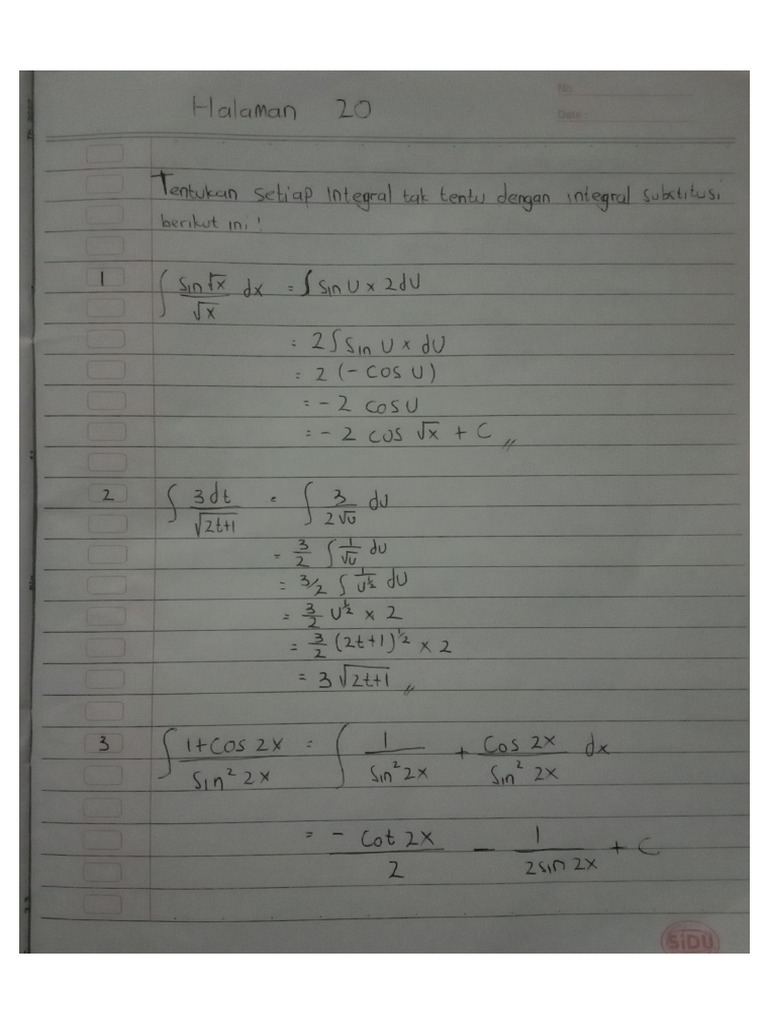 No.
Date:
Halaman 20
Tentukan setiap integral tak tentu dengan integral substitusi
berikut ini!
1 ∫ sin√x/√x dx = ∫ sin U × 2dU
= 2∫ sin U × dU
= 2 (- cos U)
= - 2 cos U
= - 2 cos √x + C //
2 ∫ 3dt/√2t+1 = ∫ 3/2√u du
= 3/2 ∫ 1/√u du
= 3/2 ∫ 1/U^½ dU
= 3/2 U^½ × 2
= 3/2 (2t+1)^½ × 2
= 3√2t+1 //
3 ∫ 1+cos 2x/sin² 2x = ∫ 1/sin² 2x + cos 2x/sin² 2x dx
= - cot 2x/2 - 1/2 sin 2x + C
SiDU